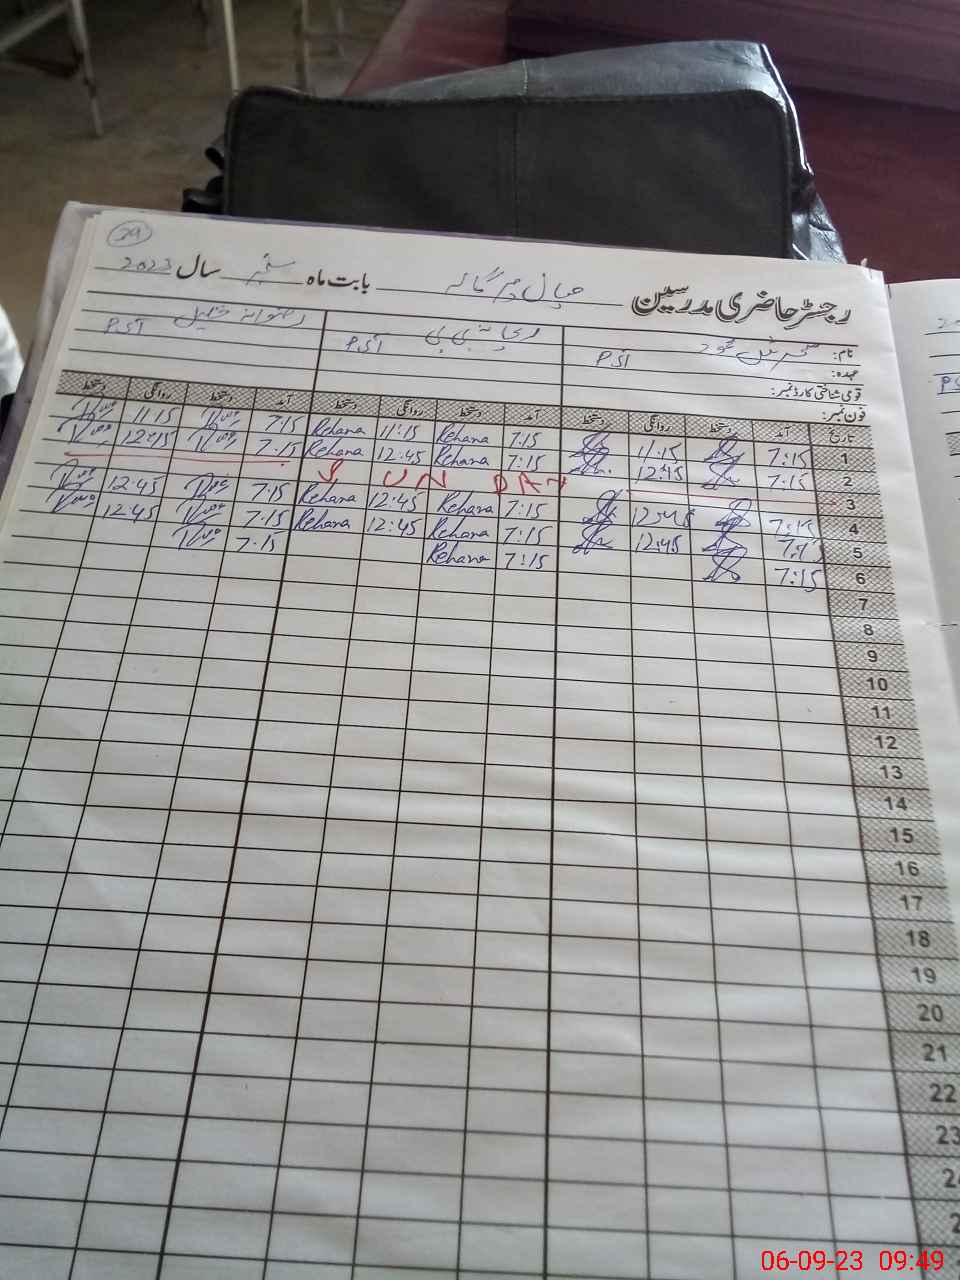 29
رجسٹر حاضری مدرسین بابت ماہ ستمبر سال 2023
نام: ریحانہ بی بی رضوانہ
عہدہ: PST PST PST
قومی شناختی کارڈ نمبر:
فون نمبر:
تاریخ آمد دستخط روانگی دستخط آمد دستخط روانگی دستخط آمد دستخط روانگی دستخط
1 7:15 11:15 7:15 Rehana 11:15 Rehana 7:15 11:15
2 7:15 12:45 7:15 Rehana 12:45 Rehana 7:15 12:45
3 SUNDAY
4 7:15 12:45 7:15 Rehana 12:45 Rehana 7:15 12:45
5 7:15 12:45 7:15 Rehana 12:45 Rehana 7:15 12:45
6 7:15 7:15 Rehana 7:15
7
8
9
10
11
12
13
14
15
16
17
18
19
20
21
22
23
06-09-23 09:49